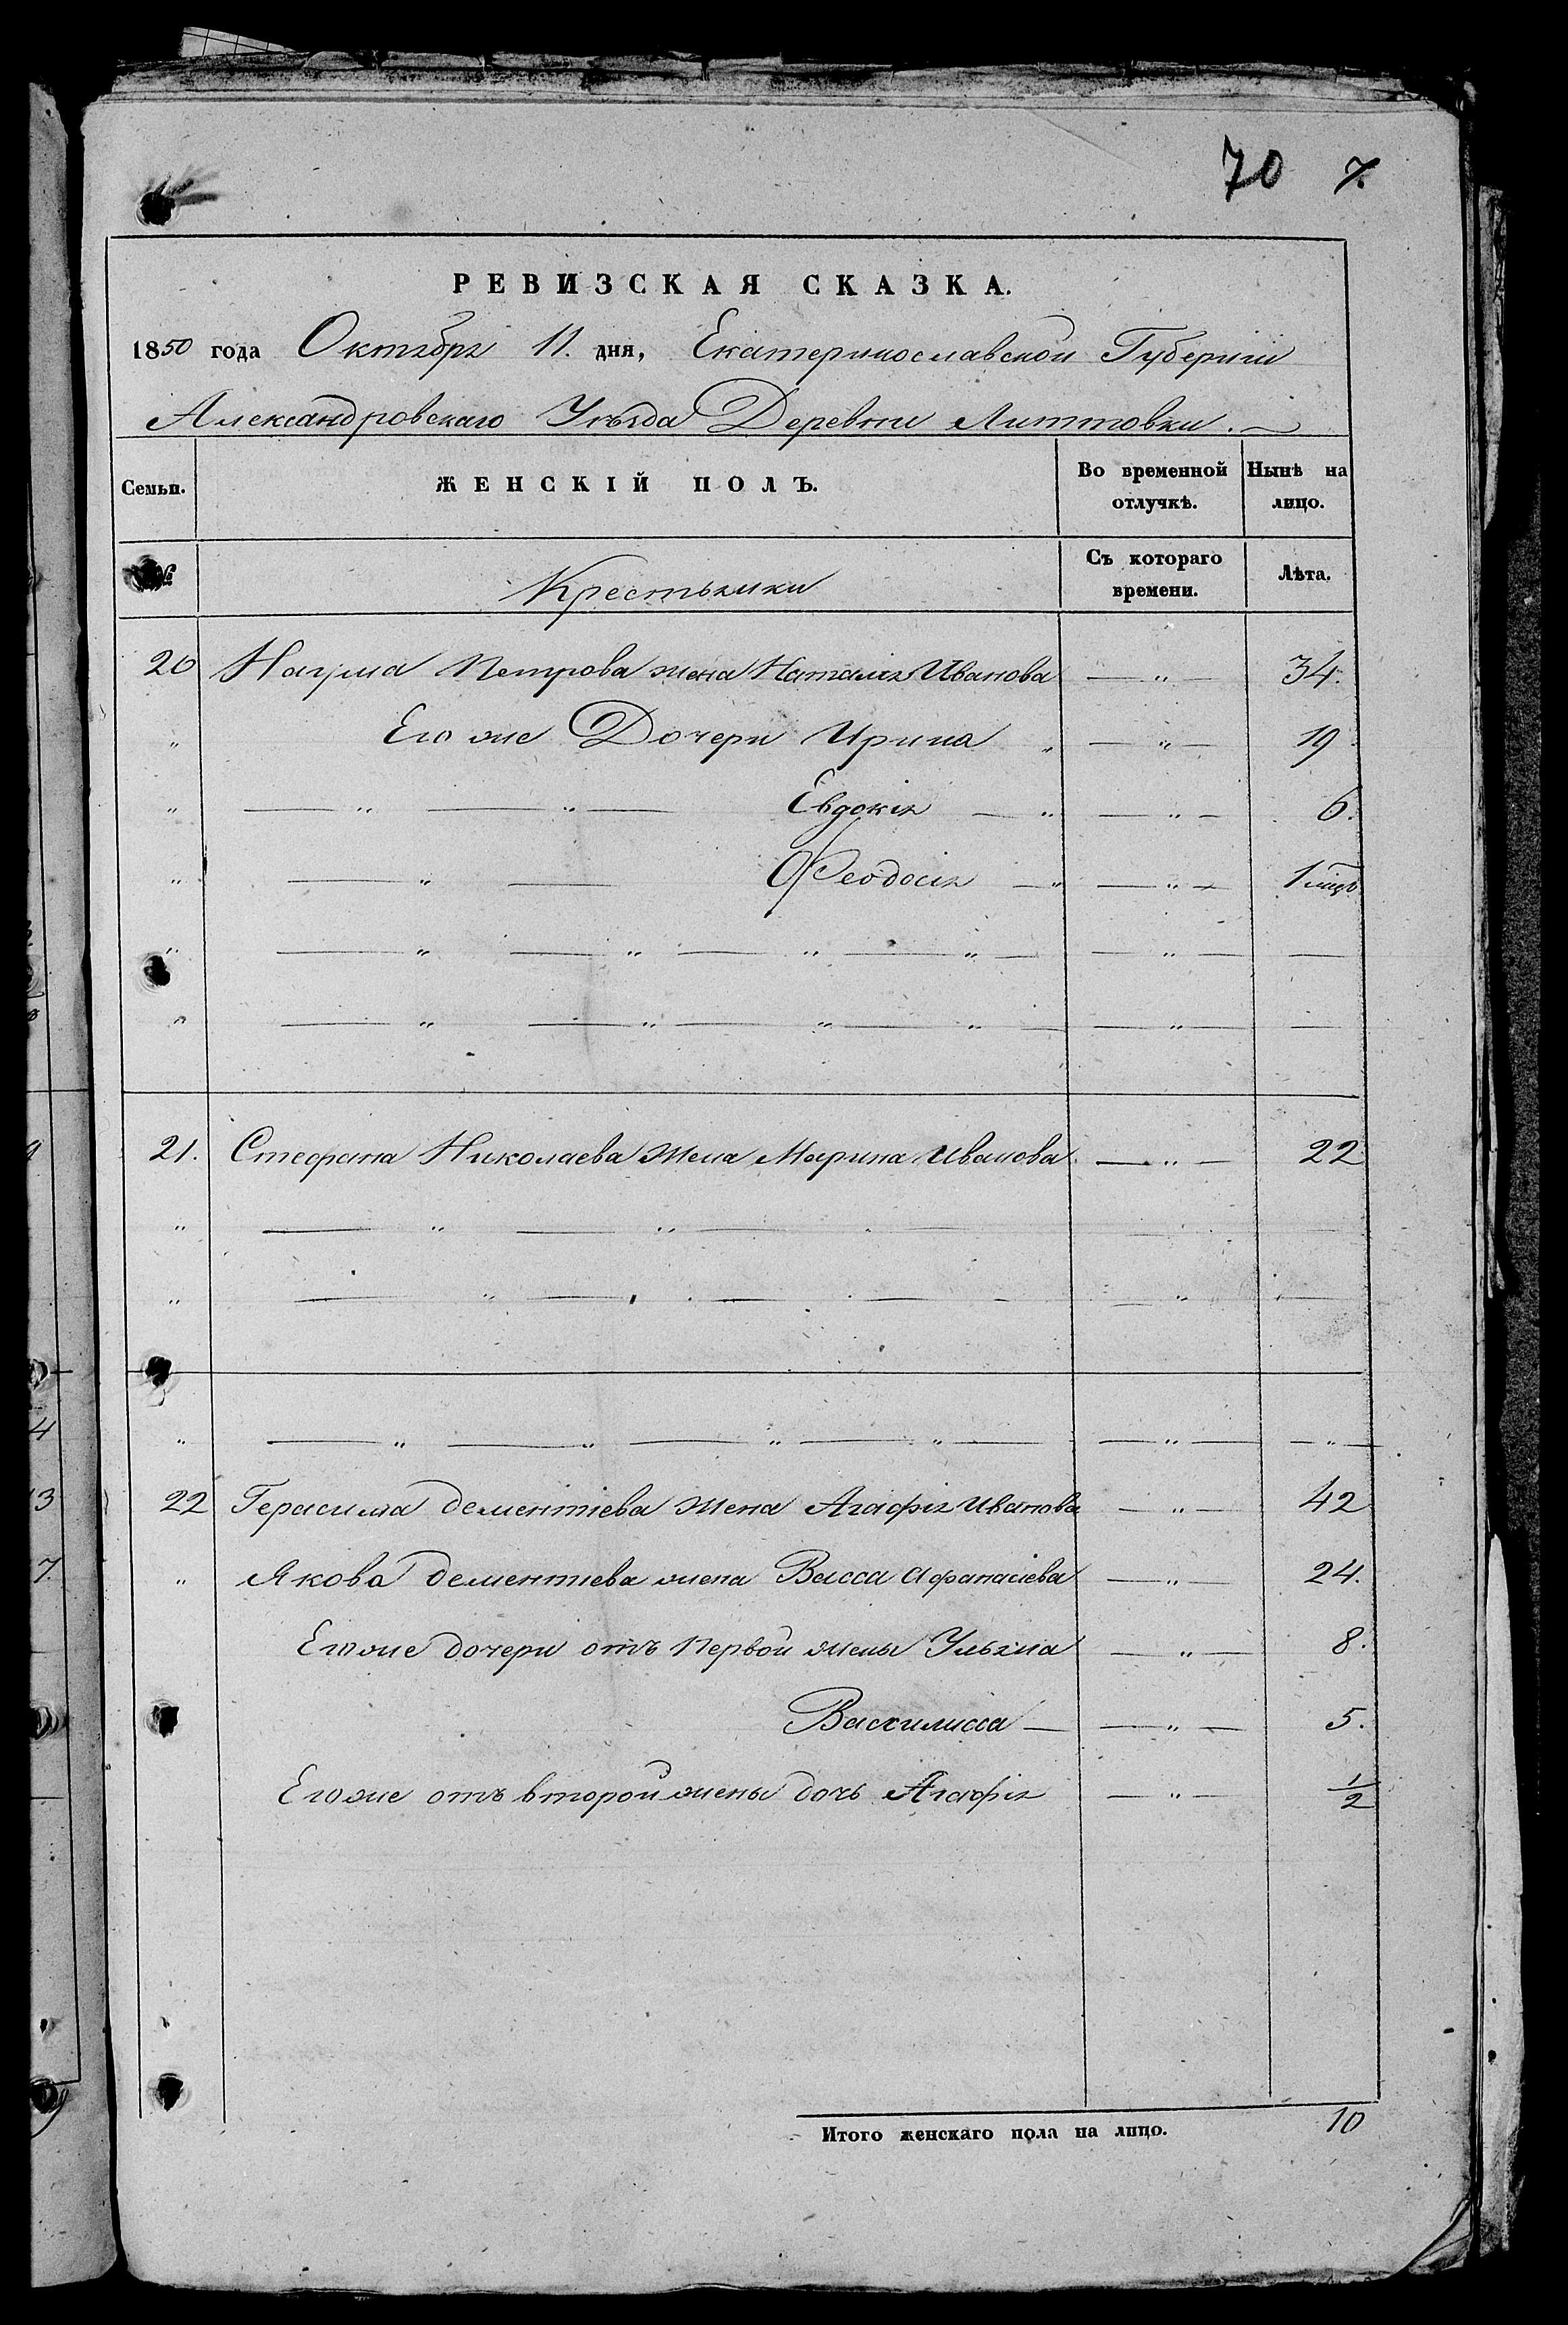 70 7.
РЕВИЗСКАЯ СКАЗКА.
1850 года Октября 11. дня, Екатеринославской Губерніи
Александровскаго Уѣзда Деревни Литтовки.
Семьи. ЖЕНСКІЙ ПОЛЪ. Во временной отлучкѣ. Нынѣ на лицо.
№ Крестьянки Съ котораго времени. Лѣта.
20 Наума Петрова жена Наталія Иванова — " — 34.
" Его же Дочери Ирина " — " — 19
" — " — " — Евдокія — " — " — 6.
" — " — Феодосія — " — " — 1 мѣц.
" — " — " — " — " — — " — —
" — " — " — " — " — — " — —
21. Стефана Николаева Жена Марина Иванова. — " — 22
" — " — " — —
" — " — — — " — —
" — " — " — " — " — — " — — " —
22 Герасима Дементіева Жена Агафія Иванова — " — 42
" Якова Дементіева жена Васса Афанасіева — " — 24.
Его же дочери отъ Первой жены Ульяна — " — 8.
Василисса — — " — 5.
Его же отъ второй жены дочь Агафія — " — 1/2
Итого женскаго пола на лицо. 10